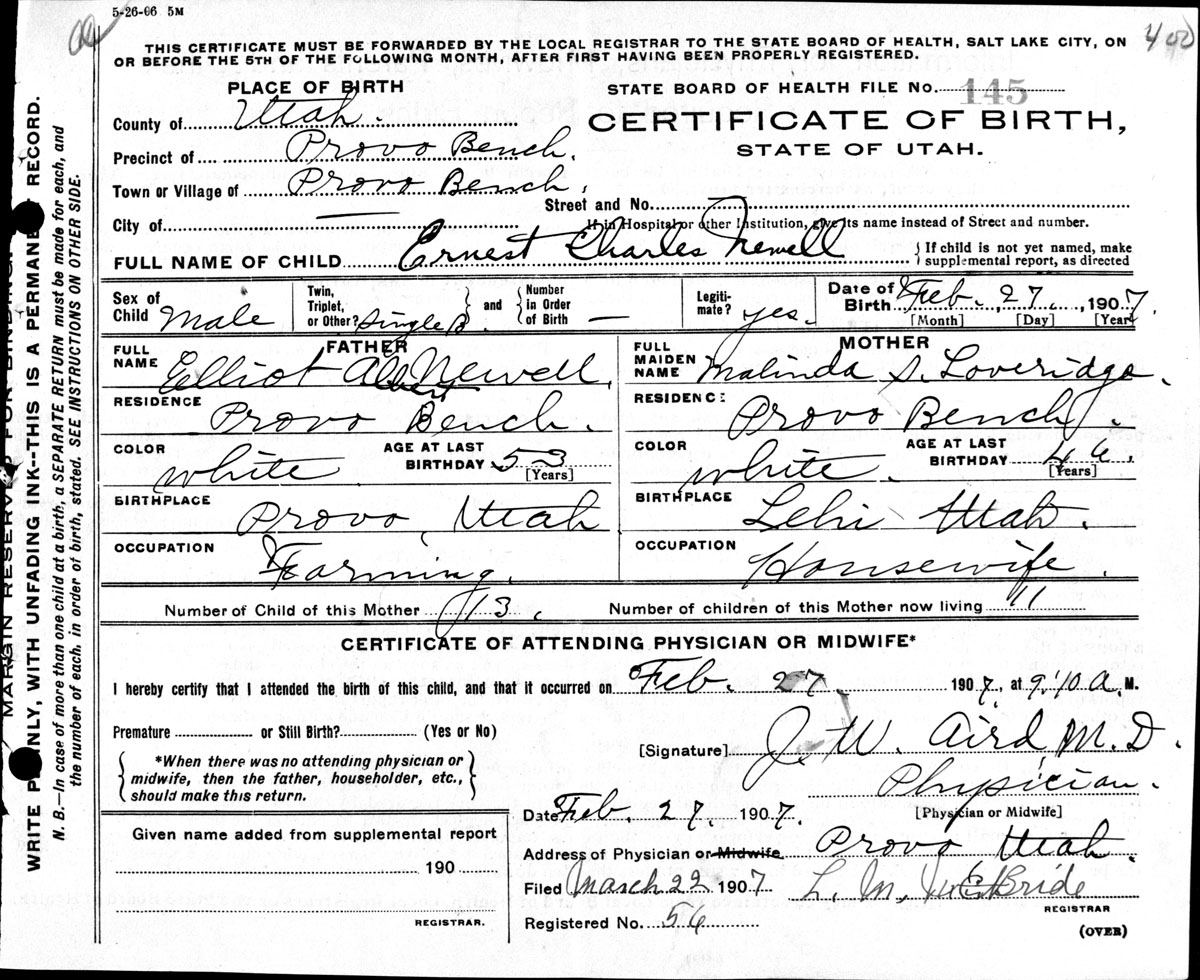 5-26-06 5M
400
THIS CERTIFICATE MUST BE FORWARDED BY THE LOCAL REGISTRAR TO THE STATE BOARD OF HEALTH, SALT LAKE CITY, ON
OR BEFORE THE 5TH OF THE FOLLOWING MONTH, AFTER FIRST HAVING BEEN PROPERLY REGISTERED.
PLACE OF BIRTH
STATE BOARD OF HEALTH FILE NO. 145
County of Utah.
CERTIFICATE OF BIRTH,
STATE OF UTAH.
Precinct of Provo Bench.
Town or Village of Provo Bench.
Street and No.
City of —
If in Hospital or other Institution, give its name instead of Street and number.
FULL NAME OF CHILD Ernest Charles Newell
{If child is not yet named, make
supplemental report, as directed
Sex of Child Male
Twin, Triplet, or Other? Single B. and Number in Order of Birth —
Legiti-mate? yes.
Date of Birth Feb. 27, 1907
[Month] [Day] [Year]
FATHER
FULL NAME Elliot Albert Newell.
RESIDENCE Provo Bench.
COLOR white
AGE AT LAST BIRTHDAY 53
[Years]
BIRTHPLACE Provo, Utah
OCCUPATION Farming.
MOTHER
FULL MAIDEN NAME Malinda S. Loveridge.
RESIDENCE Provo Bench.
COLOR white.
AGE AT LAST BIRTHDAY 46.
[Years]
BIRTHPLACE Lehi Utah.
OCCUPATION Housewife.
Number of Child of this Mother 13.
Number of children of this Mother now living 11
CERTIFICATE OF ATTENDING PHYSICIAN OR MIDWIFE*
I hereby certify that I attended the birth of this child, and that it occurred on Feb. 27. 1907, at 9:10 a. M.
Premature or Still Birth? (Yes or No)
[Signature] J. W. Aird M.D.
*When there was no attending physician or
midwife, then the father, householder, etc.,
should make this return.
Physician.
[Physician or Midwife]
Date Feb. 27. 1907.
Address of Physician or Midwife Provo Utah.
Filed March 22 1907 L. M.
REGISTRAR
Registered No. 56
(OVER)
Given name added from supplemental report
190
REGISTRAR.
MARGIN RESERVED FOR BINDING
WRITE PLAINLY, WITH UNFADING INK--THIS IS A PERMANENT RECORD.
N. B.—In case of more than one child at a birth, a SEPARATE RETURN must be made for each, and
the number of each, in order of birth, stated. SEE INSTRUCTIONS ON OTHER SIDE.